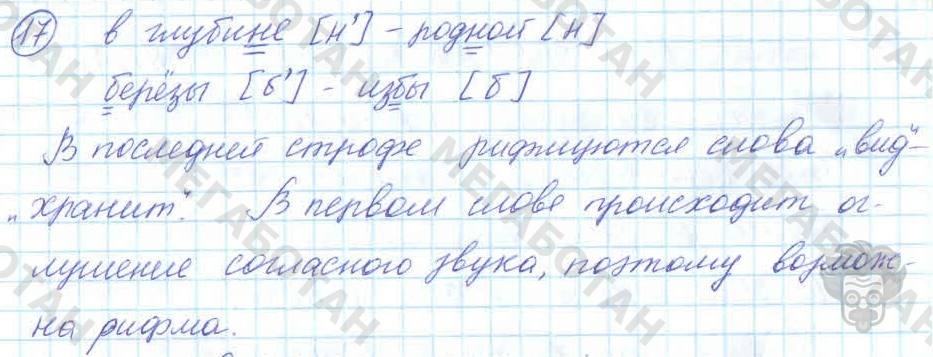 17 в глубине [н'] - родной [н]
берёзы [б'] - избы [б]
В последней строфе рифмуются слова „вид" -
„хранит". В первом слове происходит ог-
лушение согласного звука, поэтому возмож-
на рифма.
МЕГАБОТАН